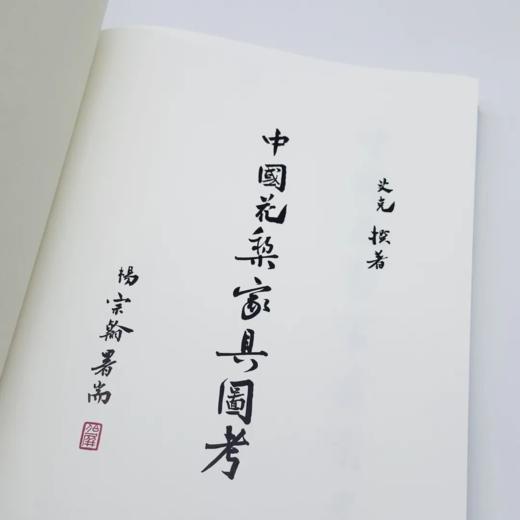 艾克 撰著
中國花梨家具圖考
楊宗翰署耑